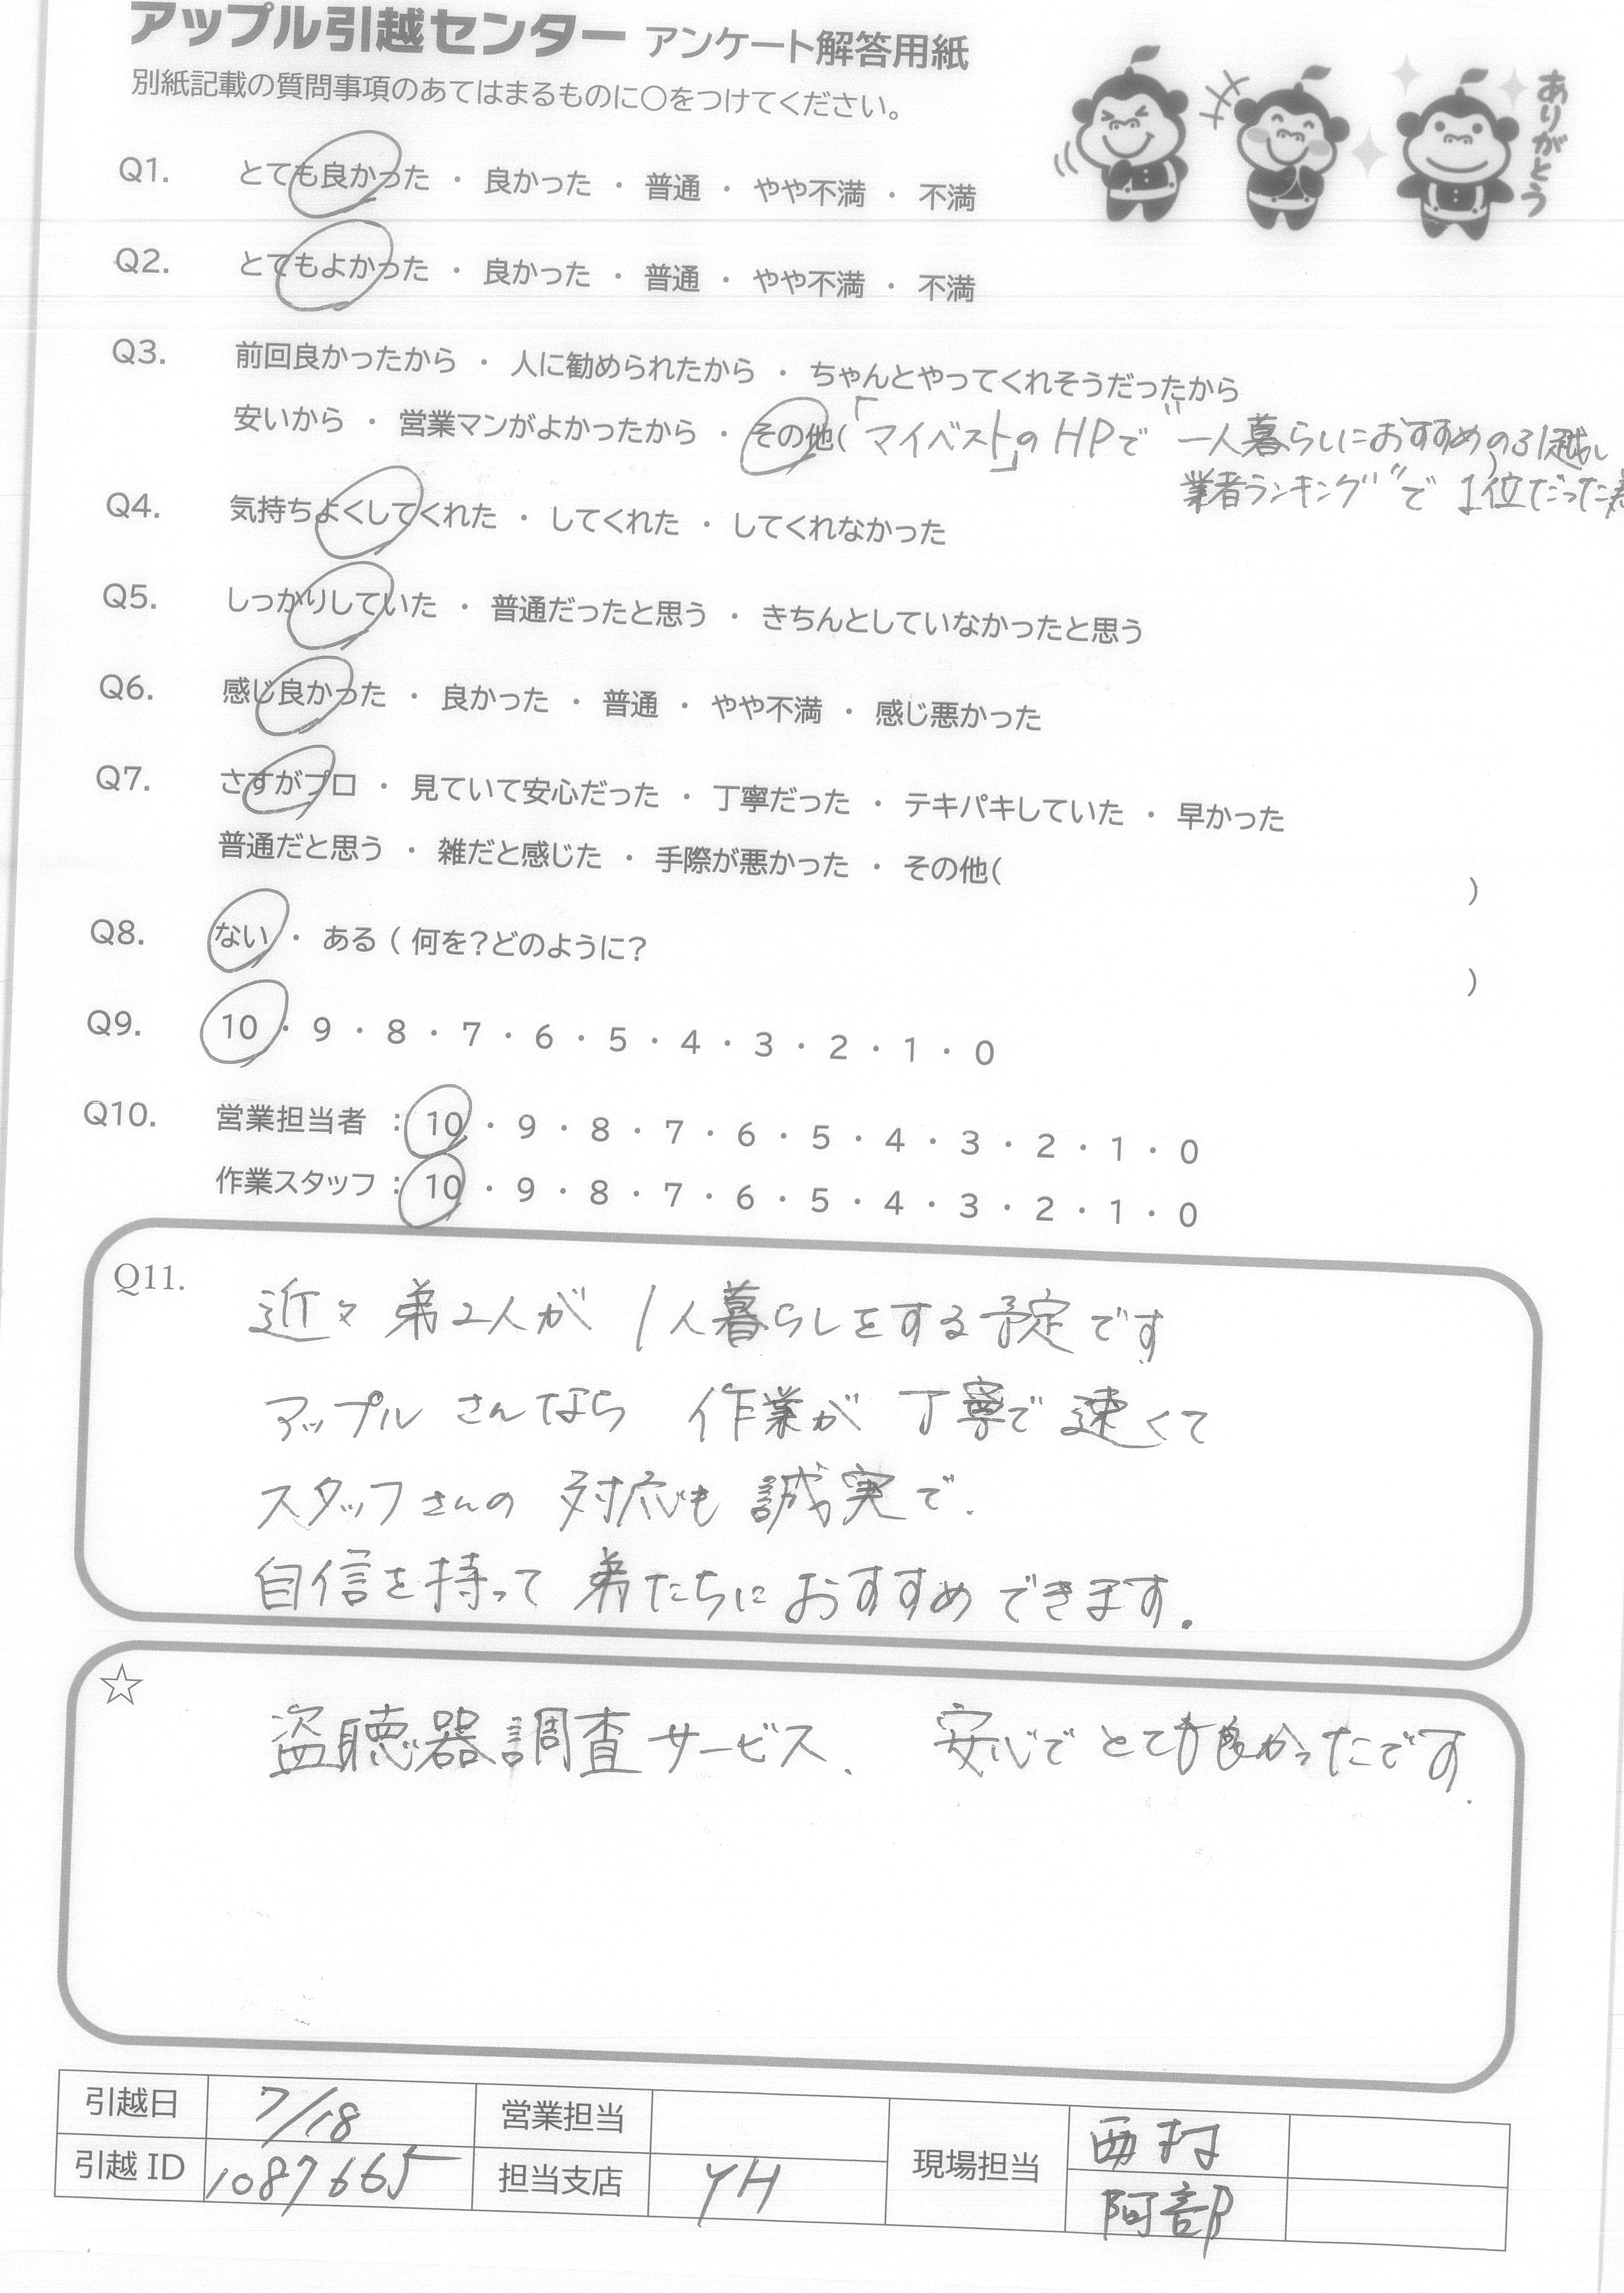 アップル引越センター アンケート解答用紙
別紙記載の質問事項のあてはまるものに〇をつけてください。
ありがとう
Q1. とても良かった ・ 良かった ・ 普通 ・ やや不満 ・ 不満
Q2. とてもよかった ・ 良かった ・ 普通 ・ やや不満 ・ 不満
Q3. 前回良かったから ・ 人に勧められたから ・ ちゃんとやってくれそうだったから
安いから ・ 営業マンがよかったから ・ その他(「マイベスト」のHPで "一人暮らしにおすすめの引越し
業者ランキング"で 1位だった為
Q4. 気持ちよくしてくれた ・ してくれた ・ してくれなかった
Q5. しっかりしていた ・ 普通だったと思う ・ きちんとしていなかったと思う
Q6. 感じ良かった ・ 良かった ・ 普通 ・ やや不満 ・ 感じ悪かった
Q7. さすがプロ ・ 見ていて安心だった ・ 丁寧だった ・ テキパキしていた ・ 早かった
普通だと思う ・ 雑だと感じた ・ 手際が悪かった ・ その他( )
Q8. ない ・ ある ( 何を?どのように? )
Q9. 10 ・ 9 ・ 8 ・ 7 ・ 6 ・ 5 ・ 4 ・ 3 ・ 2 ・ 1 ・ 0
Q10. 営業担当者 : 10 ・ 9 ・ 8 ・ 7 ・ 6 ・ 5 ・ 4 ・ 3 ・ 2 ・ 1 ・ 0
作業スタッフ : 10 ・ 9 ・ 8 ・ 7 ・ 6 ・ 5 ・ 4 ・ 3 ・ 2 ・ 1 ・ 0
Q11. 近々 弟2人が 1人暮らしをする予定です
アップル さんなら 作業が 丁寧で 速くて
スタッフさんの 対応も 誠実で、
自信を持って 弟たちに おすすめ できます。
☆ 盗聴器調査サービス、 安心で とても良かったです。
引越日 7/18 営業担当 現場担当 西村
引越 ID 1087665 担当支店 YH 阿部